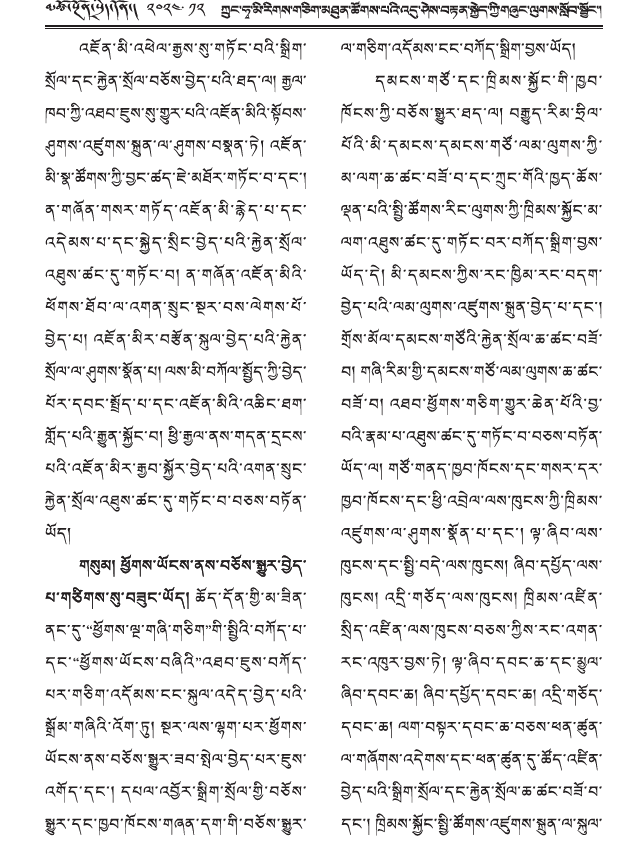 ༢༠༢༤.༡༢ ཀྲུང་ཧྭ་མི་རིགས་གཅིག་མཐུན་ཚོགས་པའི་འདུ་ཤེས་བརྟན་སྐྱེད་ཀྱི་གཞུང་ལུགས་སློབ་སྦྱོང་།
འཇོན་མི་འཕེལ་རྒྱས་སུ་གཏོང་བའི་སྒྲིག་
སྲོལ་དང་རྐྱེན་སྲོལ་བཅོས་བྱེད་པའི་ཐད་ལ། རྒྱལ་
ཁབ་ཀྱི་འཐབ་ཇུས་སུ་གྱུར་པའི་འཇོན་མིའི་སྟོབས་
ཤུགས་འཛུགས་སྐྲུན་ལ་ཤུགས་བསྣན་ཏེ། འཇོན་
མི་སྣ་ཚོགས་ཀྱི་བྱང་ཚད་ཇེ་མཐོར་གཏོང་བ་དང་།
ན་གཞོན་གསར་གཏོད་འཇོན་མི་རྙེད་པ་དང་
འདེམས་པ་དང་སྐྱེད་སྲིང་བྱེད་པའི་རྐྱེན་སྲོལ་
འཐུས་ཚང་དུ་གཏོང་བ། ན་གཞོན་འཇོན་མིའི་
ཕོགས་ཐོབ་ལ་འགན་སྲུང་སྔར་བས་ལེགས་པོ་
བྱེད་པ། འཇོན་མིར་བརྩོན་སྐུལ་བྱེད་པའི་རྐྱེན་
སྲོལ་ལ་ཤུགས་སྣོན་པ། ལས་མི་བཀོལ་སྤྱོད་ཀྱི་བྱེད་
པོར་དབང་སྤྲོད་པ་དང་འཇོན་མིའི་འཆིང་ཐག་
གློད་པའི་རྒྱུན་སྐྱོང་བ། ཕྱི་རྒྱལ་ནས་གདན་དྲངས་
པའི་འཇོན་མིར་རྒྱབ་སྐྱོར་བྱེད་པའི་འགན་སྲུང་
རྐྱེན་སྲོལ་འཐུས་ཚང་དུ་གཏོང་བ་བཅས་བཏོན་
ཡོད།
གསུམ། ཕྱོགས་ཡོངས་ནས་བཅོས་སྒྱུར་བྱེད་
པ་གཙིགས་སུ་བཟུང་ཡོད། ཆོད་དོན་གྱི་མ་ཟིན་
ནང་དུ་“ཕྱོགས་ལྔ་གཞི་གཅིག”གི་སྤྱིའི་བཀོད་པ་
དང་“ཕྱོགས་ཡོངས་བཞིའི”འཐབ་ཇུས་བཀོད་
པར་གཅིག་འདོམས་ངང་སྐུལ་འདེད་བྱེད་པའི་
སྒྲོམ་གཞིའི་འོག་ཏུ། སྔར་ལས་ལྷག་པར་ཕྱོགས་
ཡོངས་ནས་བཅོས་སྒྱུར་ཟབ་སྤེལ་བྱེད་པར་ཇུས་
འགོད་དང་། དཔལ་འབྱོར་སྒྲིག་སྲོལ་གྱི་བཅོས་
སྒྱུར་དང་ཁྱབ་ཁོངས་གཞན་དག་གི་བཅོས་སྒྱུར་
ལ་གཅིག་འདོམས་ངང་བཀོད་སྒྲིག་བྱས་ཡོད།
དམངས་གཙོ་དང་ཁྲིམས་སྐྱོང་གི་ཁྱབ་
ཁོངས་ཀྱི་བཅོས་སྒྱུར་ཐད་ལ། བརྒྱུད་རིམ་ཧྲིལ་
པོའི་མི་དམངས་དམངས་གཙོ་ལམ་ལུགས་ཀྱི་
མ་ལག་ཆ་ཚང་བཟོ་བ་དང་ཀྲུང་གོའི་ཁྱད་ཆོས་
ལྡན་པའི་སྤྱི་ཚོགས་རིང་ལུགས་ཀྱི་ཁྲིམས་སྐྱོང་མ་
ལག་འཐུས་ཚང་དུ་གཏོང་བར་བཀོད་སྒྲིག་བྱས་
ཡོད་དེ། མི་དམངས་ཀྱིས་རང་ཁྱིམ་རང་བདག་
བྱེད་པའི་ལམ་ལུགས་འཛུགས་སྐྲུན་བྱེད་པ་དང་།
གྲོས་མོལ་དམངས་གཙོའི་རྐྱེན་སྲོལ་ཆ་ཚང་བཟོ་
བ། གཞི་རིམ་གྱི་དམངས་གཙོ་ལམ་ལུགས་ཆ་ཚང་
བཟོ་བ། འཐབ་ཕྱོགས་གཅིག་གྱུར་ཆེན་པོའི་བྱ་
བའི་རྣམ་པ་འཐུས་ཚང་དུ་གཏོང་བ་བཅས་བཏོན་
ཡོད་ལ། གཙོ་གནད་ཁྱབ་ཁོངས་དང་གསར་དར་
ཁྱབ་ཁོངས་དང་ཕྱི་འབྲེལ་ལས་ཁུངས་ཀྱི་ཁྲིམས་
འཛུགས་ལ་ཤུགས་སྣོན་པ་དང་། ལྟ་ཞིབ་ལས་
ཁུངས་དང་སྤྱི་བདེ་ལས་ཁུངས། ཞིབ་དཔྱོད་ལས་
ཁུངས། འདྲི་གཅོད་ལས་ཁུངས། ཁྲིམས་འཛིན་
སྲིད་འཛིན་ལས་ཁུངས་བཅས་ཀྱིས་རང་འགན་
རང་འཁུར་བྱས་ཏེ། ལྟ་ཞིབ་དབང་ཆ་དང་མྱུལ་
ཞིབ་དབང་ཆ། ཞིབ་དཔྱོད་དབང་ཆ། འདྲི་གཅོད་
དབང་ཆ། ལག་བསྟར་དབང་ཆ་བཅས་ཕན་ཚུན་
ལ་གཞོགས་འདེགས་དང་ཕན་ཚུན་དུ་ཚོད་འཛིན་
བྱེད་པའི་སྒྲིག་སྲོལ་དང་རྐྱེན་སྲོལ་ཆ་ཚང་བཟོ་བ་
དང་། ཁྲིམས་སྐྱོང་སྤྱི་ཚོགས་འཛུགས་སྐྲུན་ལ་སྐུལ་